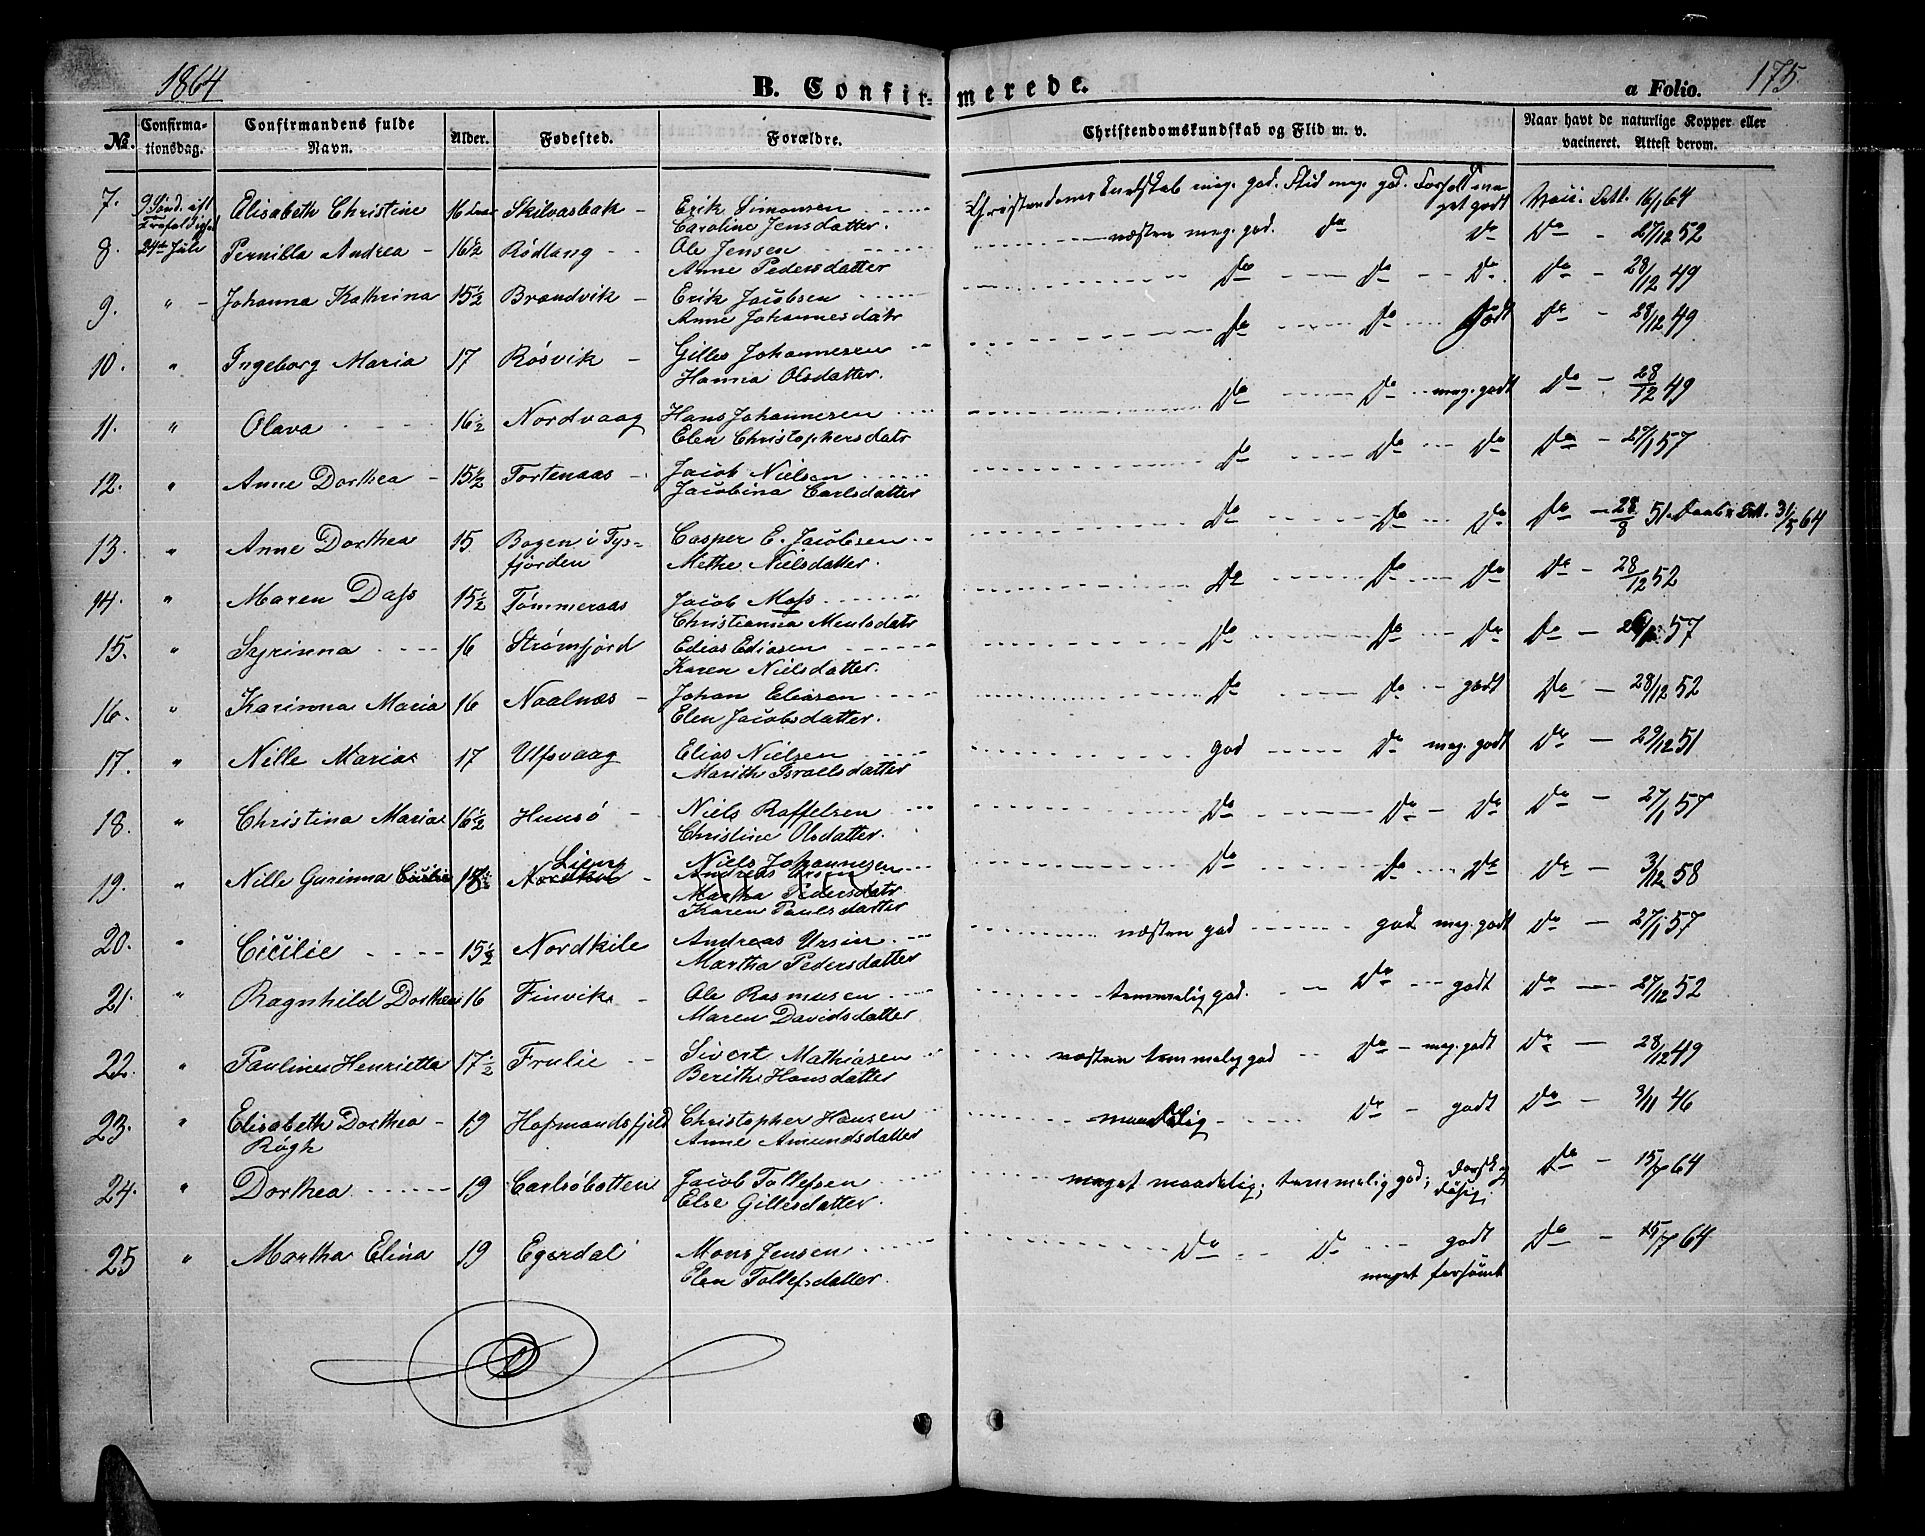 1864
B. Confirmerede.
a Folio. 175.
No. Confirmationsdag. Confirmandens fulde Navn. Alder. Fødested. Forældre. Christendomskundskab og Flid m. v. Naar havt de naturlige Kopper eller vacineret. Attest derom.
7. 9 Sönd. eft Elisabeth Christine 16 Skilvasbak - Erik Simonsen Christendomskundskab meg. god. Flid meg. god. Forhold meget godt Vacc. Att. 16/1 64
Caroline Jensdatter.
8. 24de Juli Pernilla Andrea - 16½ Rödlang - Ole Jensen næsten meg. god. Do Do Do - 27/12 52
Anne Pedersdatter
9. " - Johanna Kathrina 15½ Brandvik - Erik Jacobsen Do Do Do Do - 28/12 49
Anne Johannesdatr
10. " Ingeborg Maria 17 Rösvik - Gilles Johannesen Do Do Godt Do - 28/12 49
Hanna Olsdatter.
11. " Olava 16½ Nordvaag Hans Johannesen Do Do meg. godt Do - 28/12 49
Elen Christophersdatr
12. " Anne Dorthea - 15½ Tortenaas - Jacob Nielsen Do Do Do Do - 27/1 57
Jacobina Carlsdatter
13. " Anne Dorthea 15 Bogen i Tys- Casper E. Jacobsen Do Do Do Do - 28/8 51. Daabs Att. 31/5 64
fjorden Methe Nielsdatter.
14. " Maren Dass 15½ Tømmeraas Jacob Moss Do Do Do Do - 28/12 52
Christianna Mentsdatr
15. " Syrinna 16 Strømfjord Edias Ediasen Do Do Do Do - 57
Karen Nielsdatter.
16. " Karinna Maria 16 Naalnæs - Johan Eliasen Do Do godt Do - 28/12 52
Elen Jacobsdatter.
17. " Nille Maria 17 Ulfsvaag Elias Nielsen god Do meg. godt Do - 29/12 51
Marith Israelsdatter
18. " Christina Maria 16½ Hunsö - Niels Raffelsen Do Do Do Do - 27/1 57
Christine Olsdatter.
19. " Nille Gurinna Cicilie Lien Nordkil - Niels Johannesen Do Do Do Do - 3/12 58
Andreas Ursin
Martha Pedersdatr
Karen Paulsdatter
20. " Cicilie 15½ Nordkile Andreas Ursin. næsten god god meg. godt Do - 27/1 57
Martha Pedersdatter
21. " Ragnhild Dorthea 16 Finvik - Ole Rasmusen temmelig god. Do godt Do - 27/12 52
Maren Davidsdatter
22. " Pauline Henrietta 17½ Frulie - Sivert Mathiasen næsten temmelig god Do - meg. godt Do - 28/12 49
Berith Hansdatter
23. " Elisabeth Dorthea - 19 Hofmandsfjeld Christopher Hansen maadelig Do - godt Do - 3/11 46
Røgh Anne Amundsdatter
24. " Dorthea 19 Carlsöbotten Jacob Tollefsen meget maadelig; temmelig god; dorsk og Do - 15/7 64
Else Gillesdatter dösig.
25 " Martha Elina 19 Egerdal Mons Jensen Do Do godt Do - 15/7 64
Elen Tollefsdatter. meget forsömt